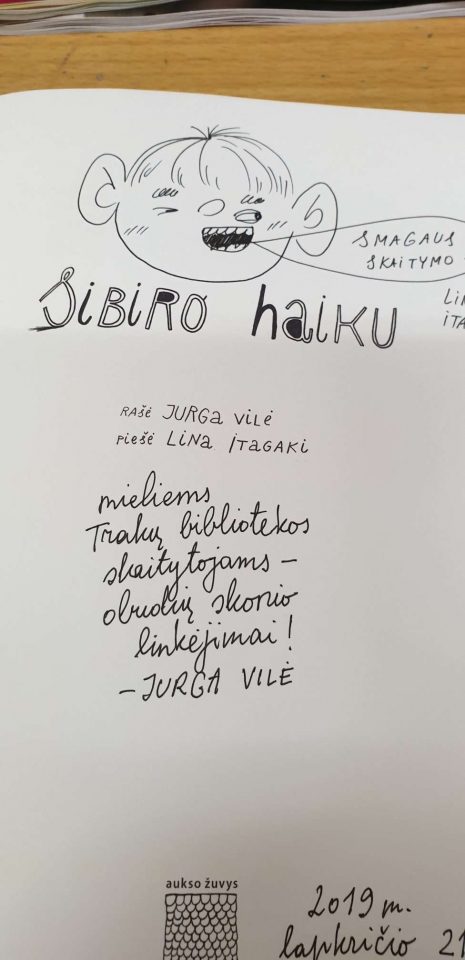 SMAGAUS
SKAITYMO
LIN
ITA
SiBiRO haiKU
RAŠĖ JURGa ViLĖ
PiEŠĖ LiNa ITAGAKi
mieliems
Trakų bibliotekos
skaitytojams –
obuolių skonio
linkėjimai!
– JURGA VILĖ
aukso žuvys
2019 m.
lapkričio 21